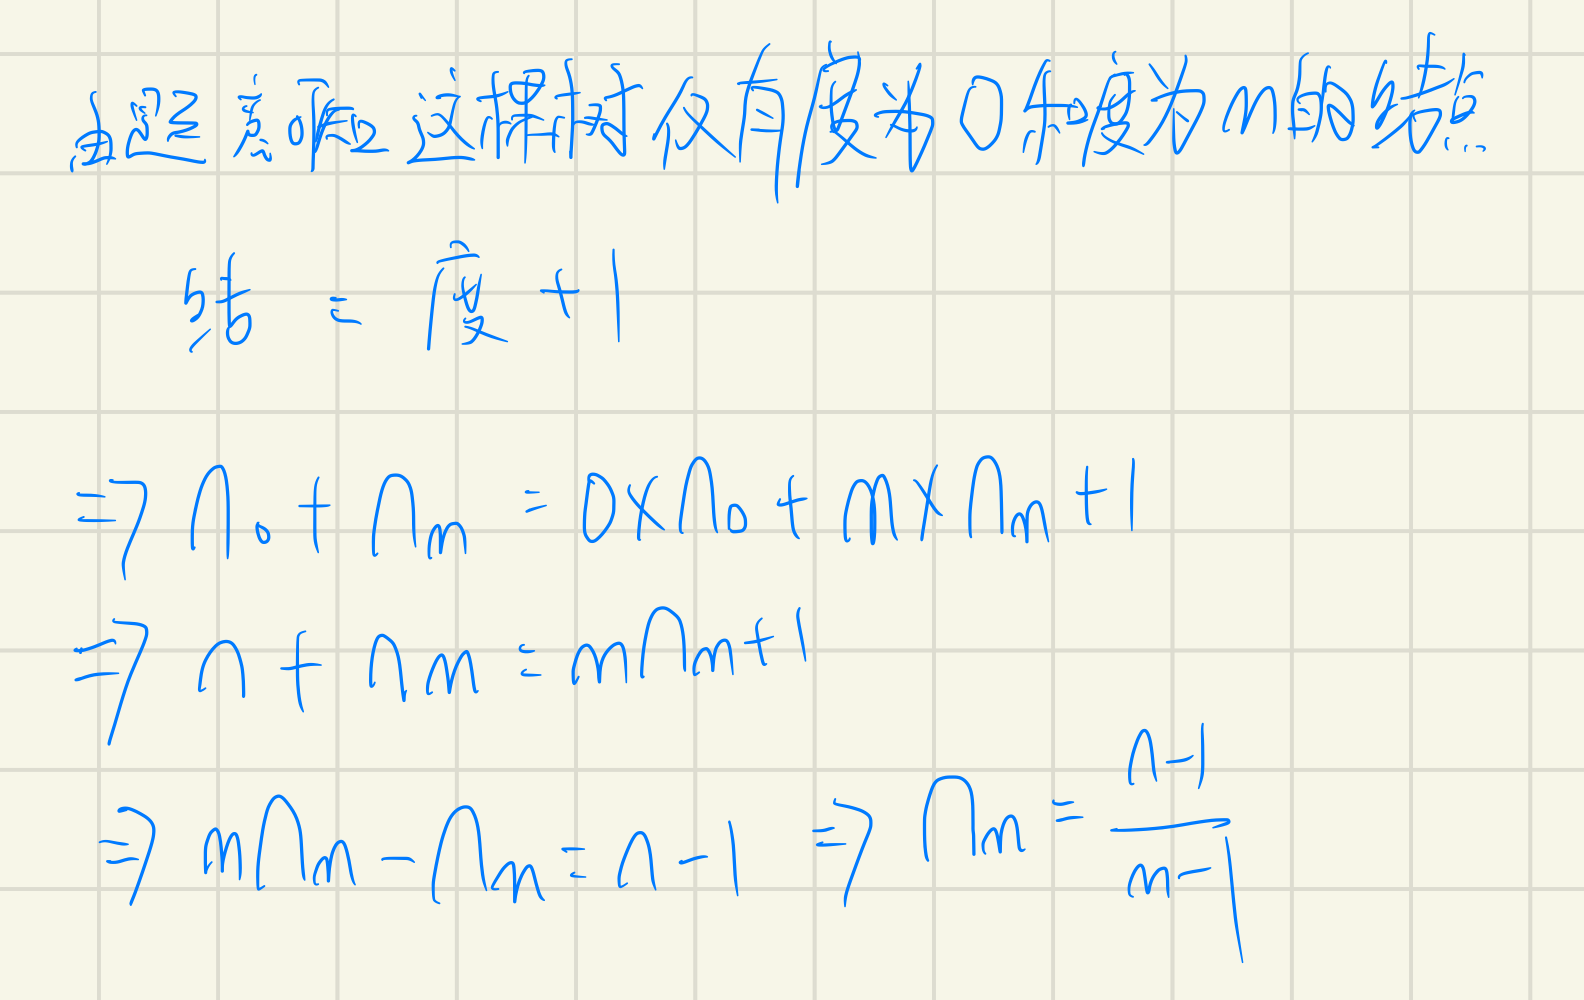 由题意哈夫这棵树仅有度为0和度为m的结点
结 = 度 + 1
⇒ n₀ + nₘ = 0×n₀ + m×nₘ + 1
⇒ n + nₘ = mnₘ + 1
⇒ mnₘ - nₘ = n - 1 ⇒ nₘ = (n-1)/(m-1)